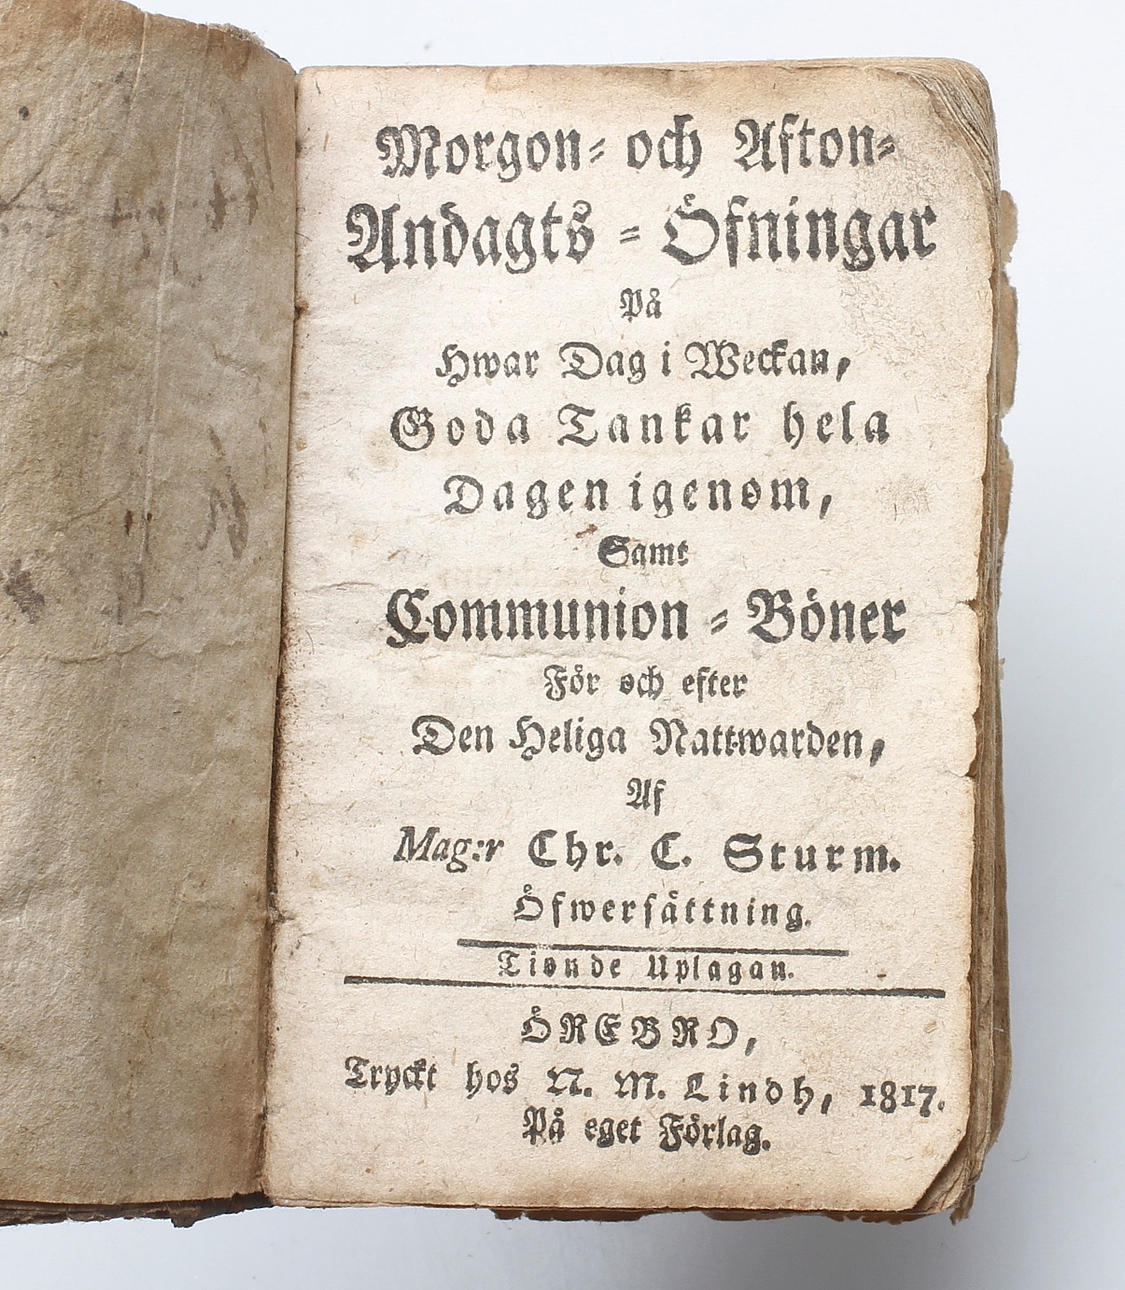 Morgon- och Afton-
Andagts-Öfningar
På
Hwar Dag i Weckan,
Goda Tankar hela
Dagen igenom,
Samt
Communion-Böner
För och efter
Den Heliga Nattwarden,
Af
Mag:r Chr. C. Sturm.
Öfwersättning.
Tionde Uplagan.
ÖREBRO,
Tryckt hos N. M. Lindh, 1817.
På eget Förlag.